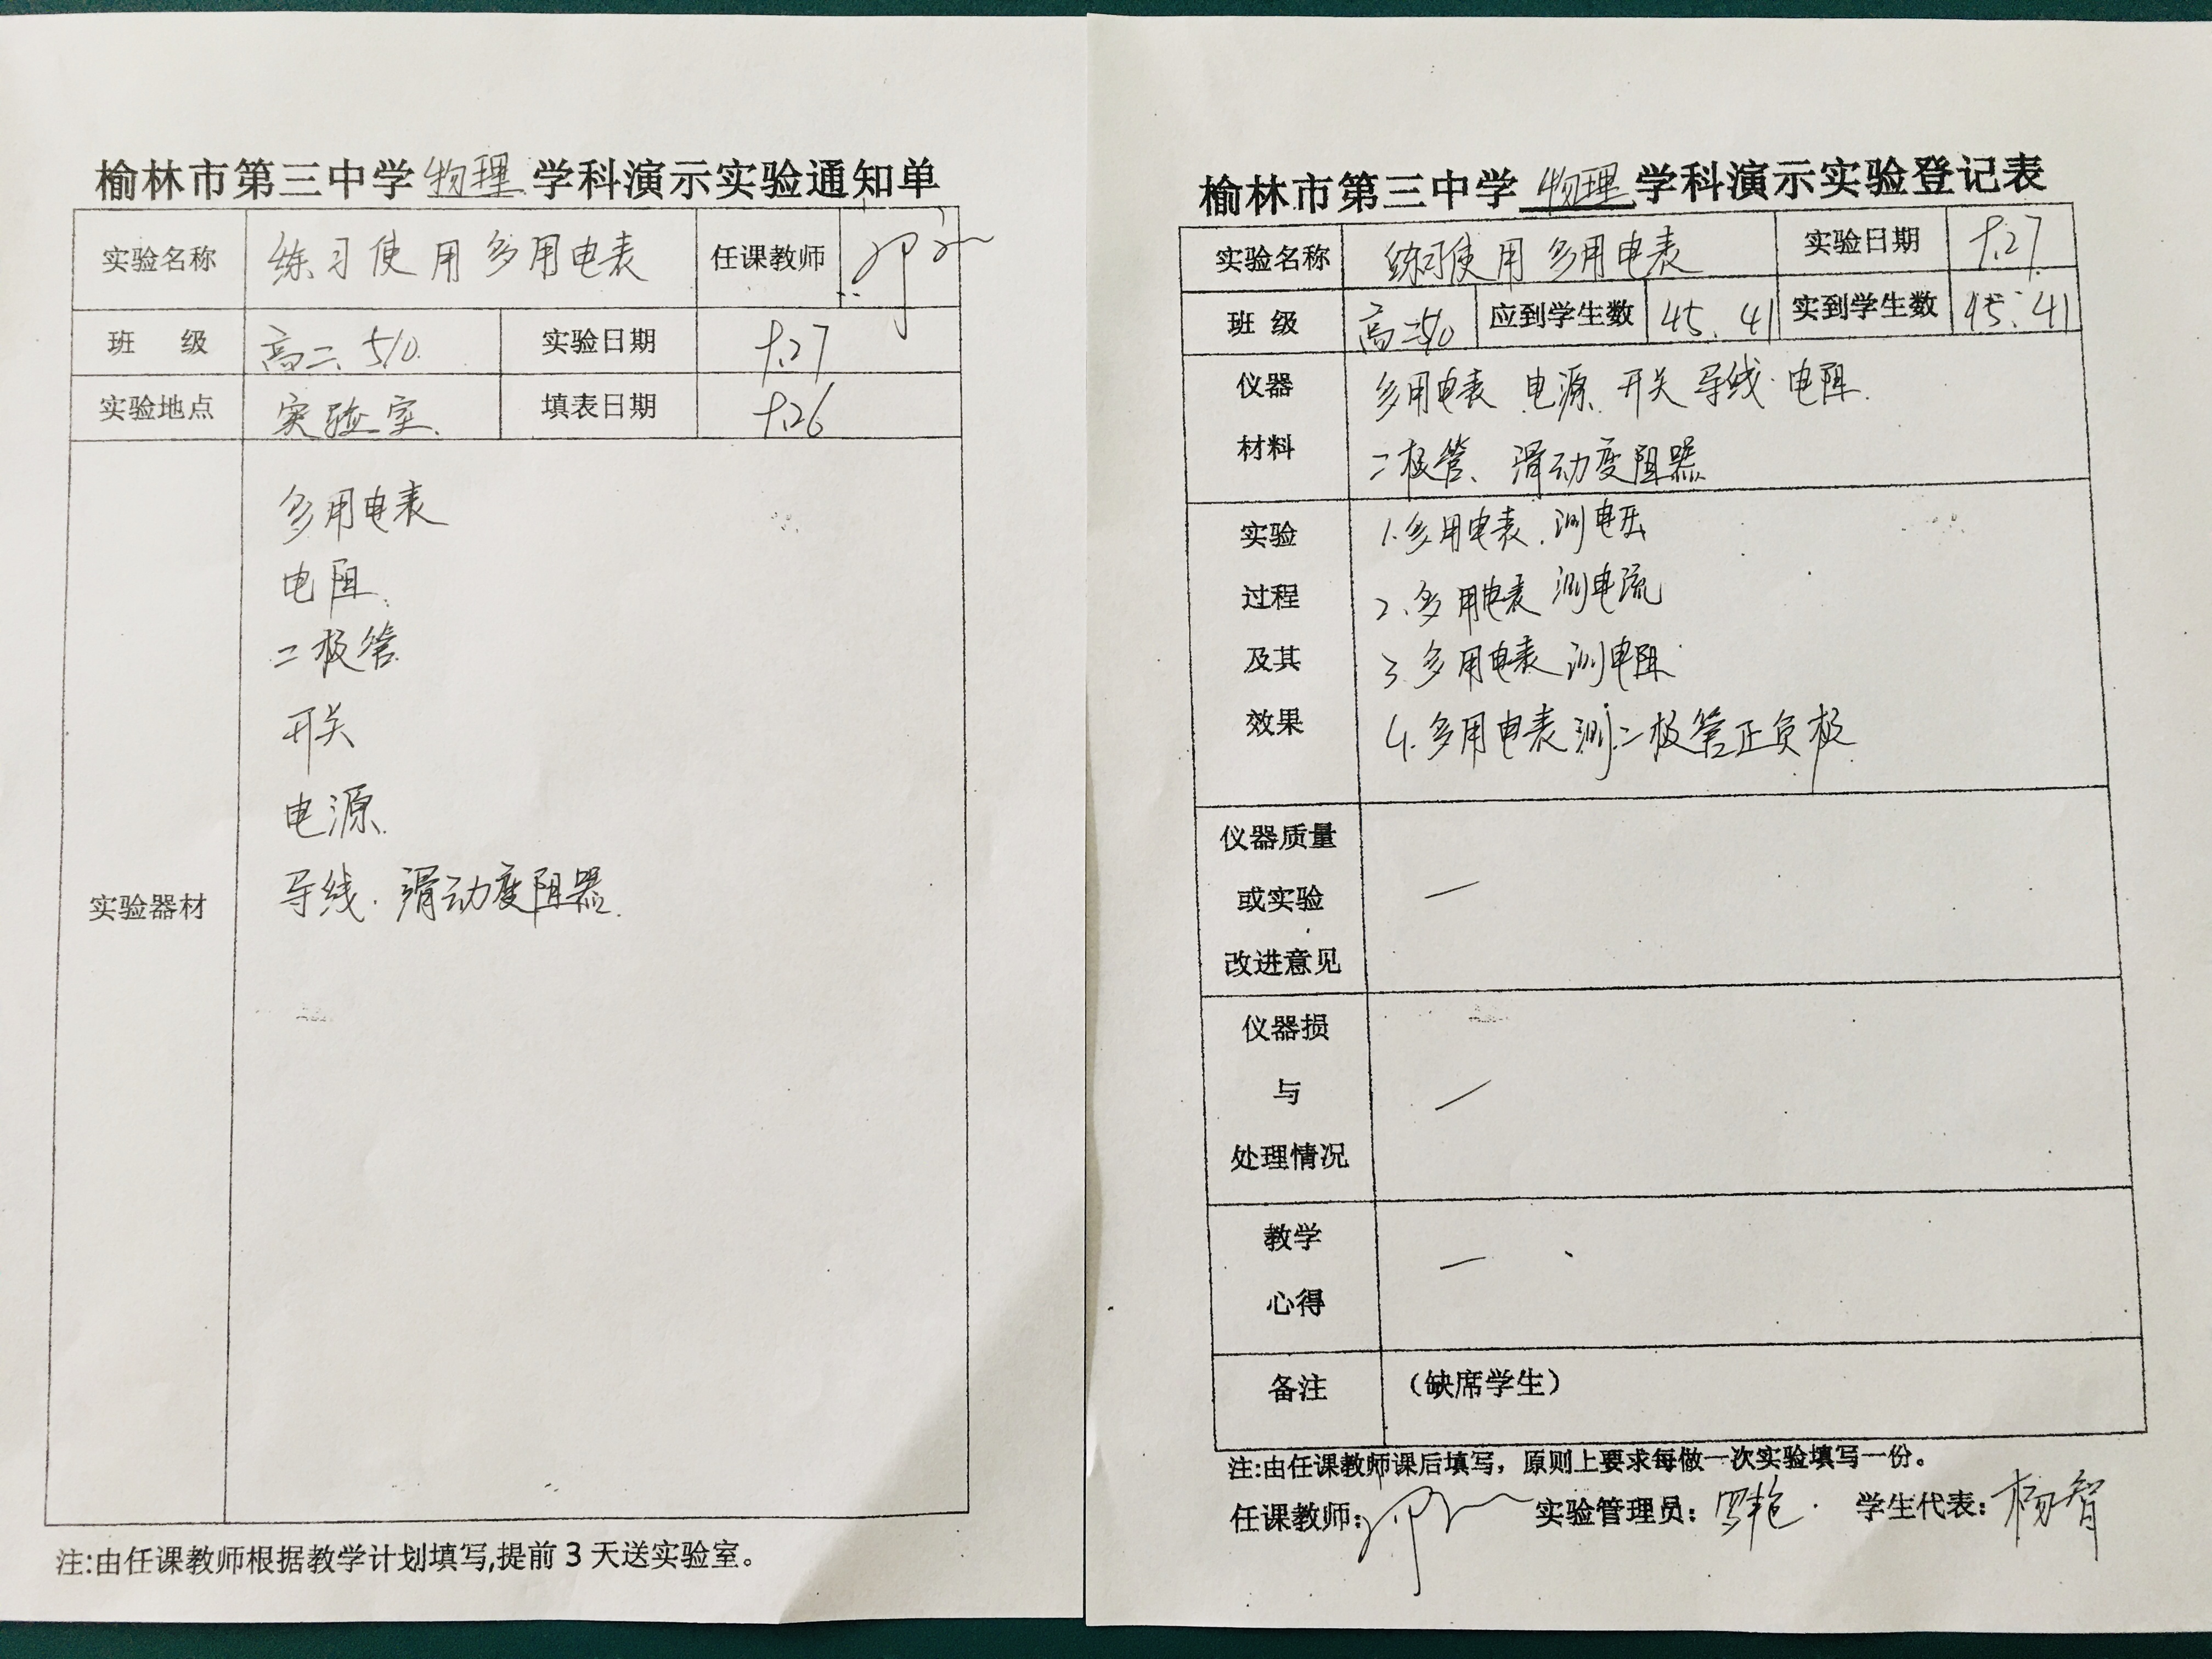 榆林市第三中学物理学科演示实验通知单
实验名称 练习使用多用电表 任课教师
班 级 高二、5/0. 实验日期 9.27
实验地点 实验室. 填表日期 9.26
实验器材
多用电表
电阻.
二极管
开关
电源.
导线.滑动变阻器.
注:由任课教师根据教学计划填写,提前3天送实验室。
榆林市第三中学物理学科演示实验登记表
实验名称 练习使用多用电表 实验日期 9.27
班 级 高二5/0 应到学生数 45.41 实到学生数 45.41
仪器 多用电表 电源. 开关 导线.电阻.
材料 二极管、滑动变阻器
实验 1.多用电表.测电压
过程 2.多用电表 测电流
及其 3.多用电表 测电阻
效果 4.多用电表测二极管正负极
仪器质量
或实验 —
改进意见
仪器损
与 —
处理情况
教学 —
心得
备注 (缺席学生)
注:由任课教师课后填写，原则上要求每做一次实验填写一份。
任课教师: 实验管理员: 学生代表: 杨智